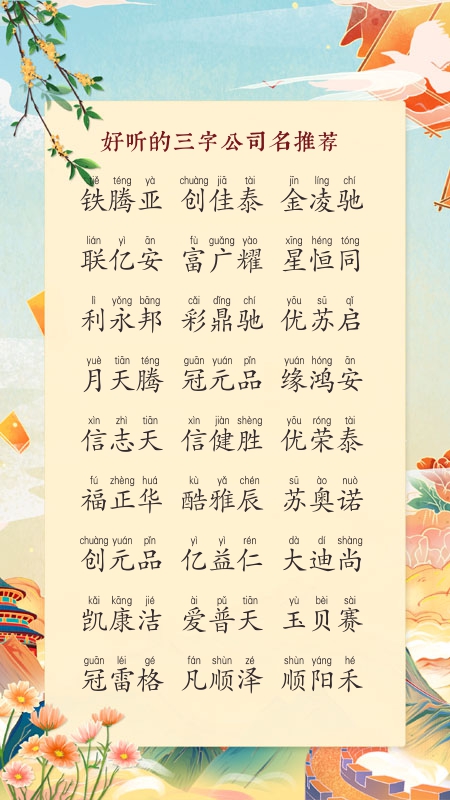 好听的三字公司名推荐
tiě téng yà chuàng jiā tài jīn líng chí
铁腾亚 创佳泰 金凌驰
lián yì ān fù guǎng yào xīng héng tóng
联亿安 富广耀 星恒同
lì yǒng bāng cǎi dǐng chí yōu sū qǐ
利永邦 彩鼎驰 优苏启
yuè tiān téng guān yuán pǐn yuán hóng ān
月天腾 冠元品 缘鸿安
xìn zhì tiān xìn jiàn shèng yōu róng tài
信志天 信健胜 优荣泰
fú zhèng huá kù yǎ chén sū ào nuò
福正华 酷雅辰 苏奥诺
chuàng yuán pǐn yì yì rén dà dí shàng
创元品 亿益仁 大迪尚
kǎi kāng jié ài pǔ tiān yù bèi sài
凯康洁 爱普天 玉贝赛
guān léi gé fán shùn zé shùn yáng hé
冠雷格 凡顺泽 顺阳禾